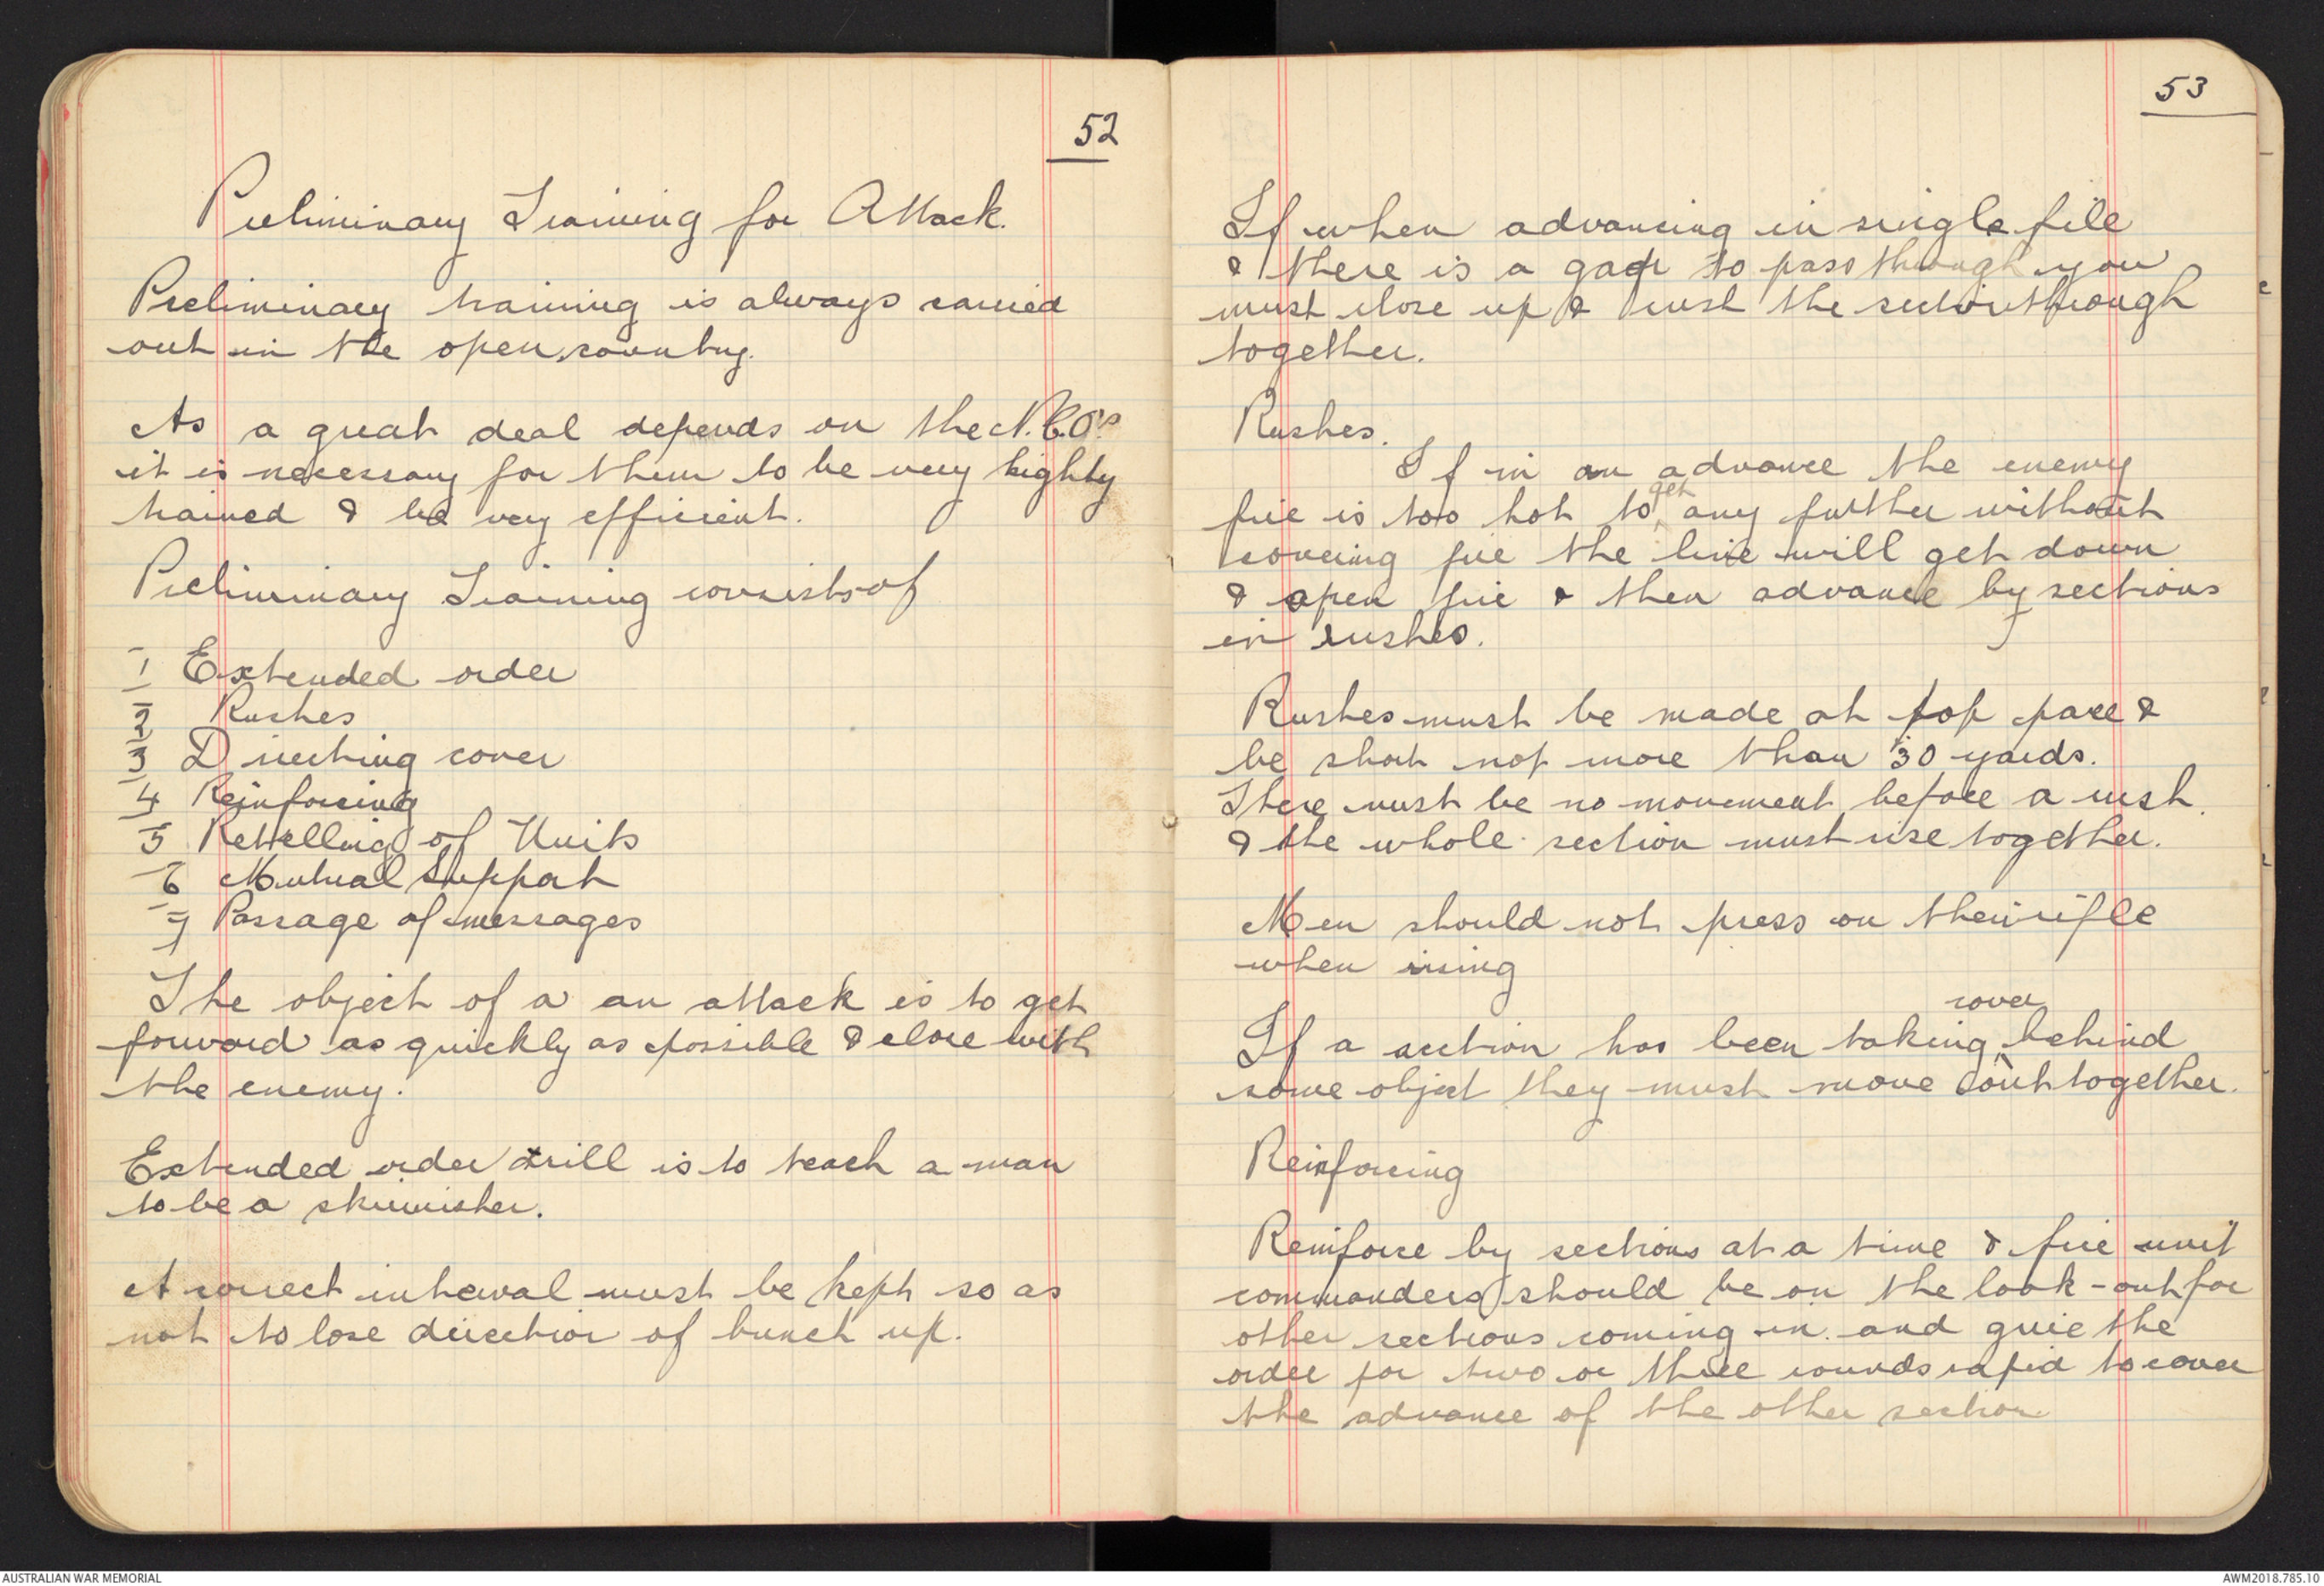 52
Preliminary Training for Attack.
Preliminary training is always carried
out in the open country.
As a great deal depends on the N.C.O's
it is necessary for them to be very highly
trained & be very efficient.
Preliminary Training consists of
1 Extended order
2 Rushes
3 Directing cover
4 Reinforcing
5 Retelling of Units
6 Mutual Support
7 Passage of messages
The object of a an attack is to get
forward as quickly as possible & close with
the enemy.
Extended order drill is to teach a man
to be a skirmisher.
A correct interval must be kept so as
not to lose direction of bunch up.
53
If when advancing in single file
& there is a gap to pass through you
must close up & rush the section through
together.
Rushes.
If in an advance the enemy
fire is too hot to get any further without
covering fire the line will get down
& open fire & then advance by sections
in rushes.
Rushes must be made at top pace &
be short not more than 30 yards.
There must be no movement before a rush
& the whole section must rise together.
Men should not press on their rifle
when rising
If a section has been taking cover behind
some object they must move out together.
Reinforcing
Reinforce by sections at a time & fire unit
commanders should be on the look-out for
other sections coming in. and give the
order for two or three rounds rapid to cover
the advance of the other section.
AUSTRALIAN WAR MEMORIAL
AWM2018.785.10